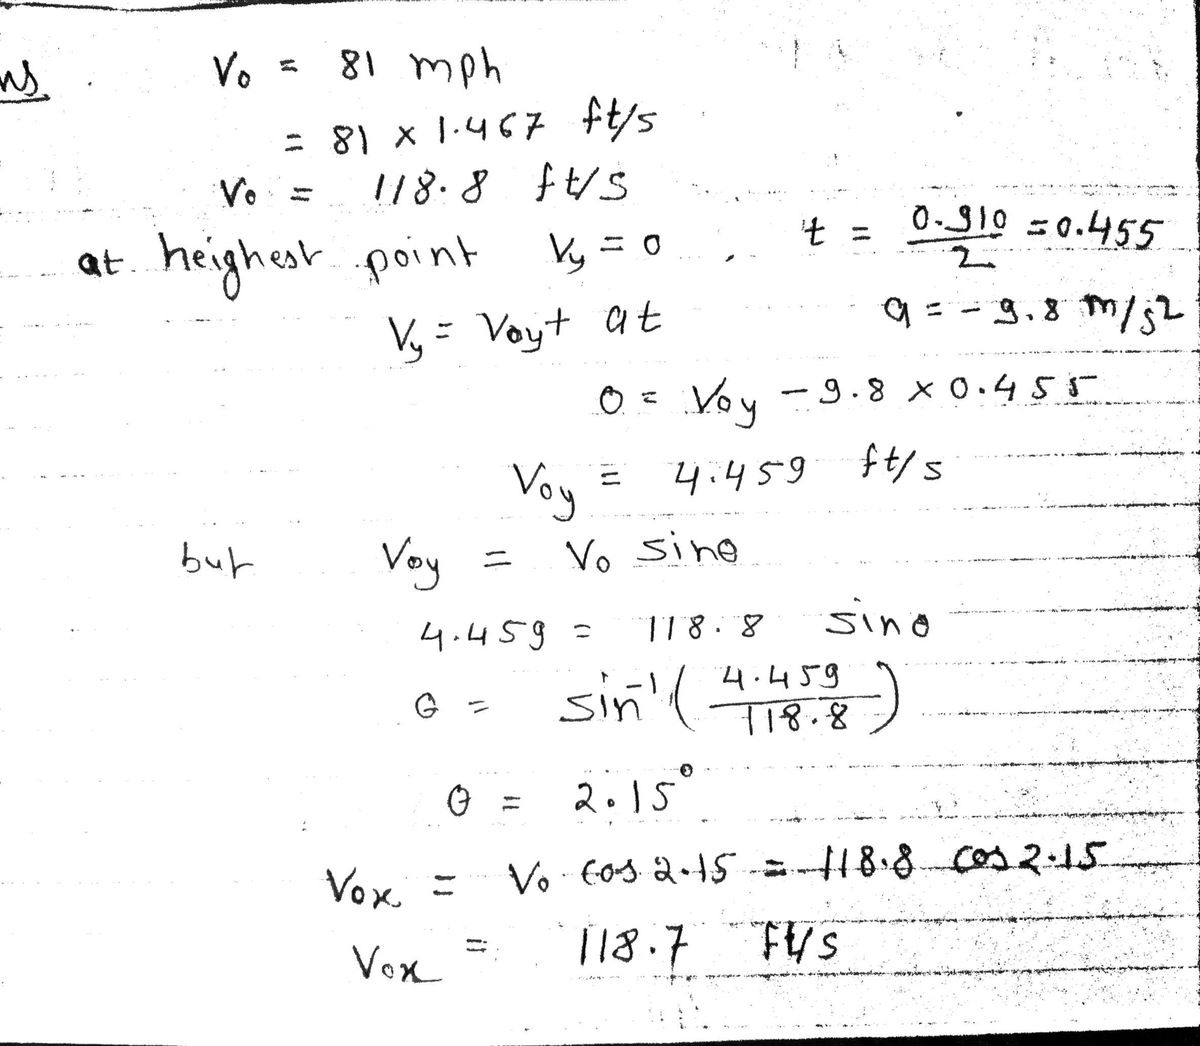 ns. V₀ = 81 mph
= 81 × 1.467 ft/s
V₀ = 118.8 ft/s
at heighest point Vy = 0, t = 0.910/2 = 0.455
Vy = V₀y + at a = -9.8 m/s2
0 = V₀y - 9.8 × 0.455
V₀y = 4.459 ft/s
but V₀y = V₀ sinθ
4.459 = 118.8 sinθ
θ = sin⁻¹(4.459/118.8)
θ = 2.15°
V₀x = V₀ cos 2.15 = 118.8 cos 2.15
V₀x = 118.7 ft/s